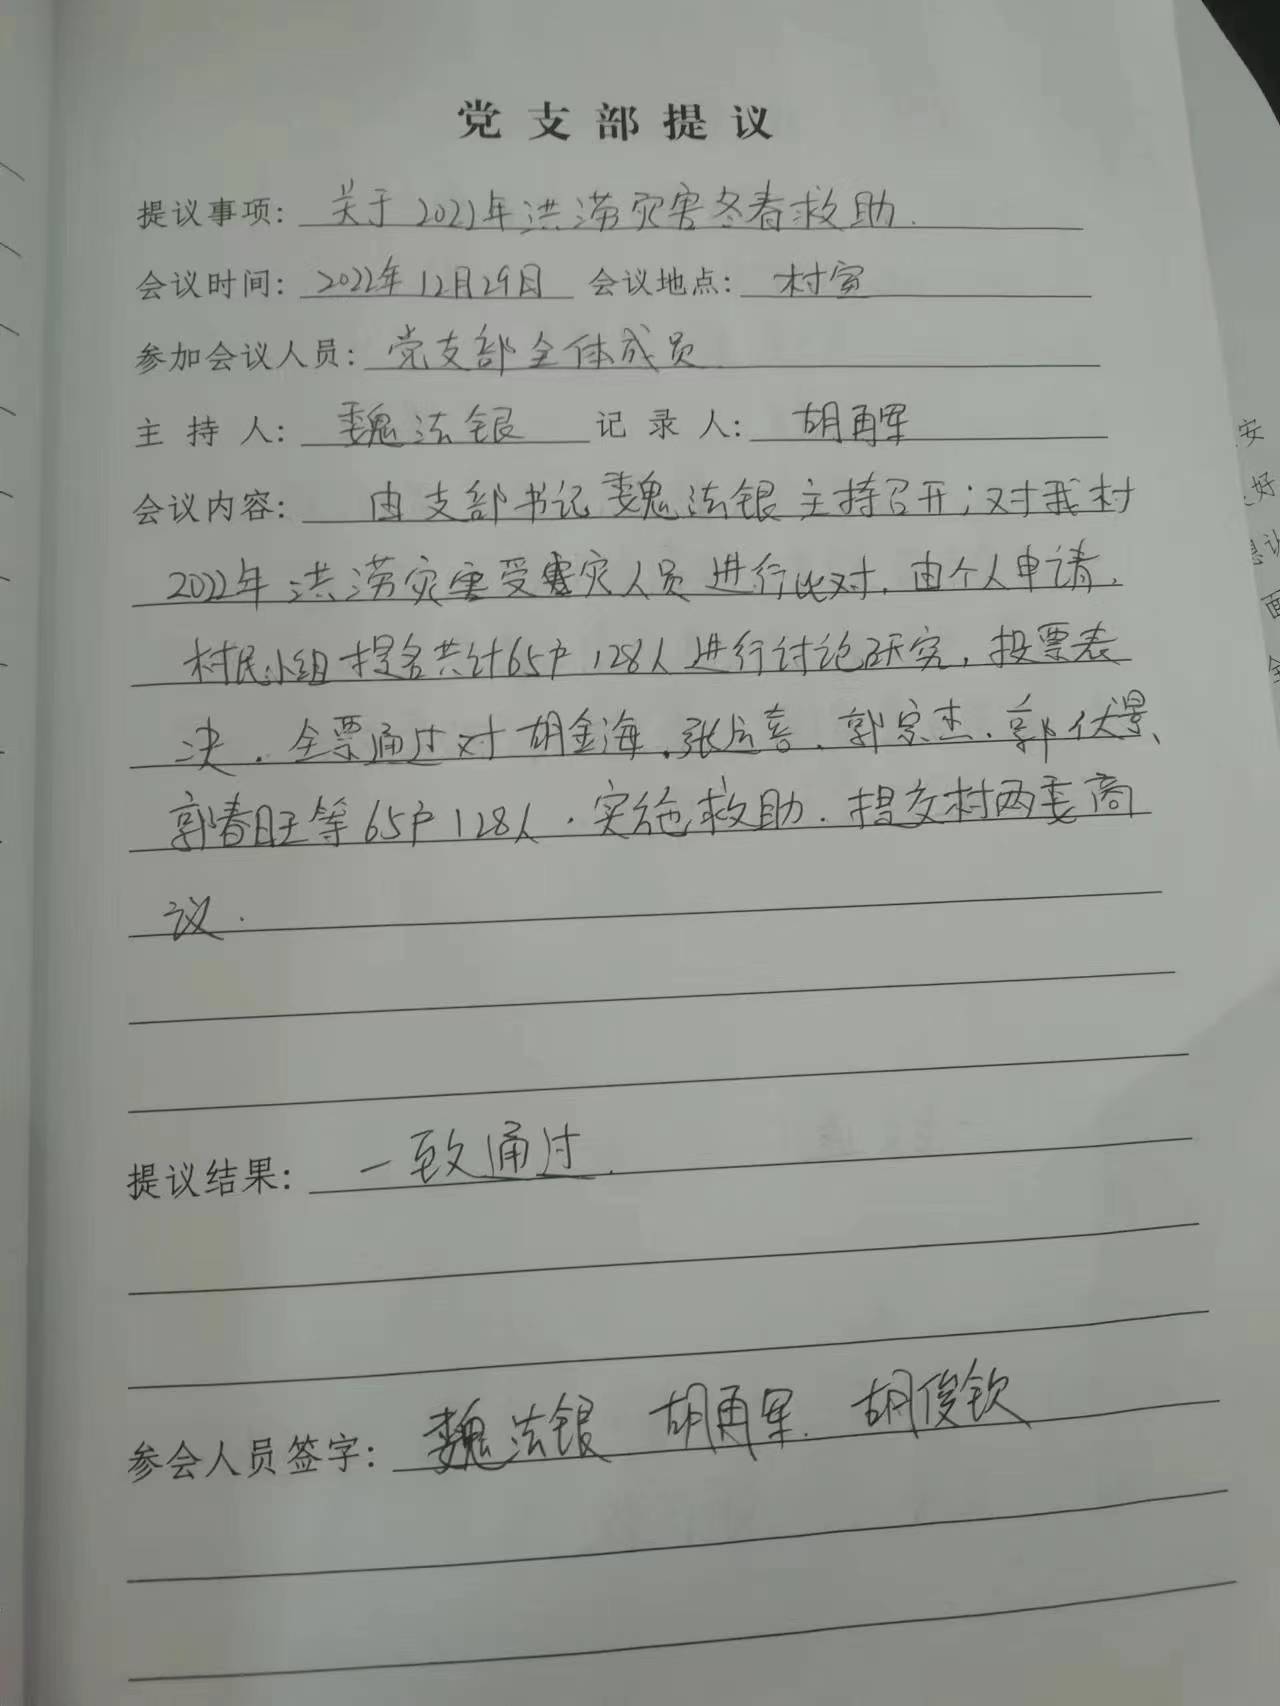 党支部提议
提议事项: 关于2021年洪涝灾害冬春救助.
会议时间: 2022年12月29日 会议地点: 村室
参加会议人员: 党支部全体成员
主持人: 魏法银 记录人: 胡再军
会议内容: 由支部书记魏法银主持召开;对我村
2022年洪涝灾害受灾人员进行比对.由个人申请,
村民小组提名共计65户128人进行讨论研究,投票表
决.全票通过对胡金海.张喜.郭宗杰.郭伏景、
郭春旺等65户128人.实施救助.提交村两委商
议.
提议结果: 一致通过.
参会人员签字: 魏法银 胡再军. 胡俊钦
安
好
面